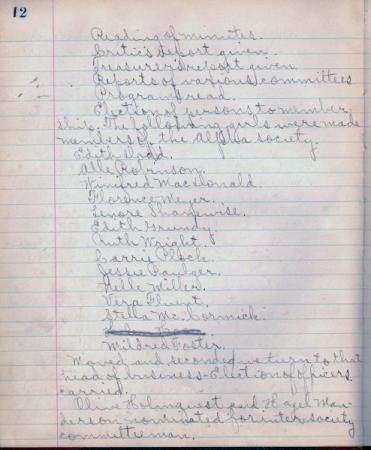 12
Reading of minutes.
Critic's report given.
Treasurer's report given.
Reports of various committees
Program read.
Election of persons to member-
ship. The following girls were made
members of the Alpha society.
Edith Dodd.
Alle Robinson.
Winifred MacDonald.
Florence Meyer.
Lenore Shanewise.
Edith Grundy.
Ruth Wright.
Carrie Plock.
Jessie Paulger.
Nelle Miller.
Vera Fluent.
Stella Mc. Cormick.
Mildred Foster.
Moved and seconded we turn to that
head of business - Election of officers.
carried.
Olive Holmquest and Hazel Man-
derson nominated for inter-society
committieman.